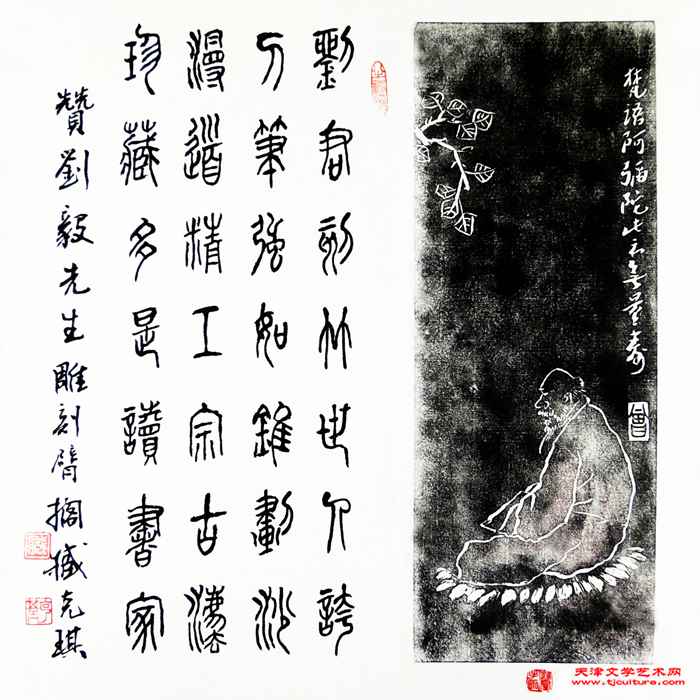 梵語阿彌陀此云無量壽
劉君刻竹世人誇
刀筆強如錐劃沙
漫道精工宗古法
珍藏多是讀書家
贊劉毅先生雕刻臂擱臧克琪
天津文学艺术网
www.tjculture.com